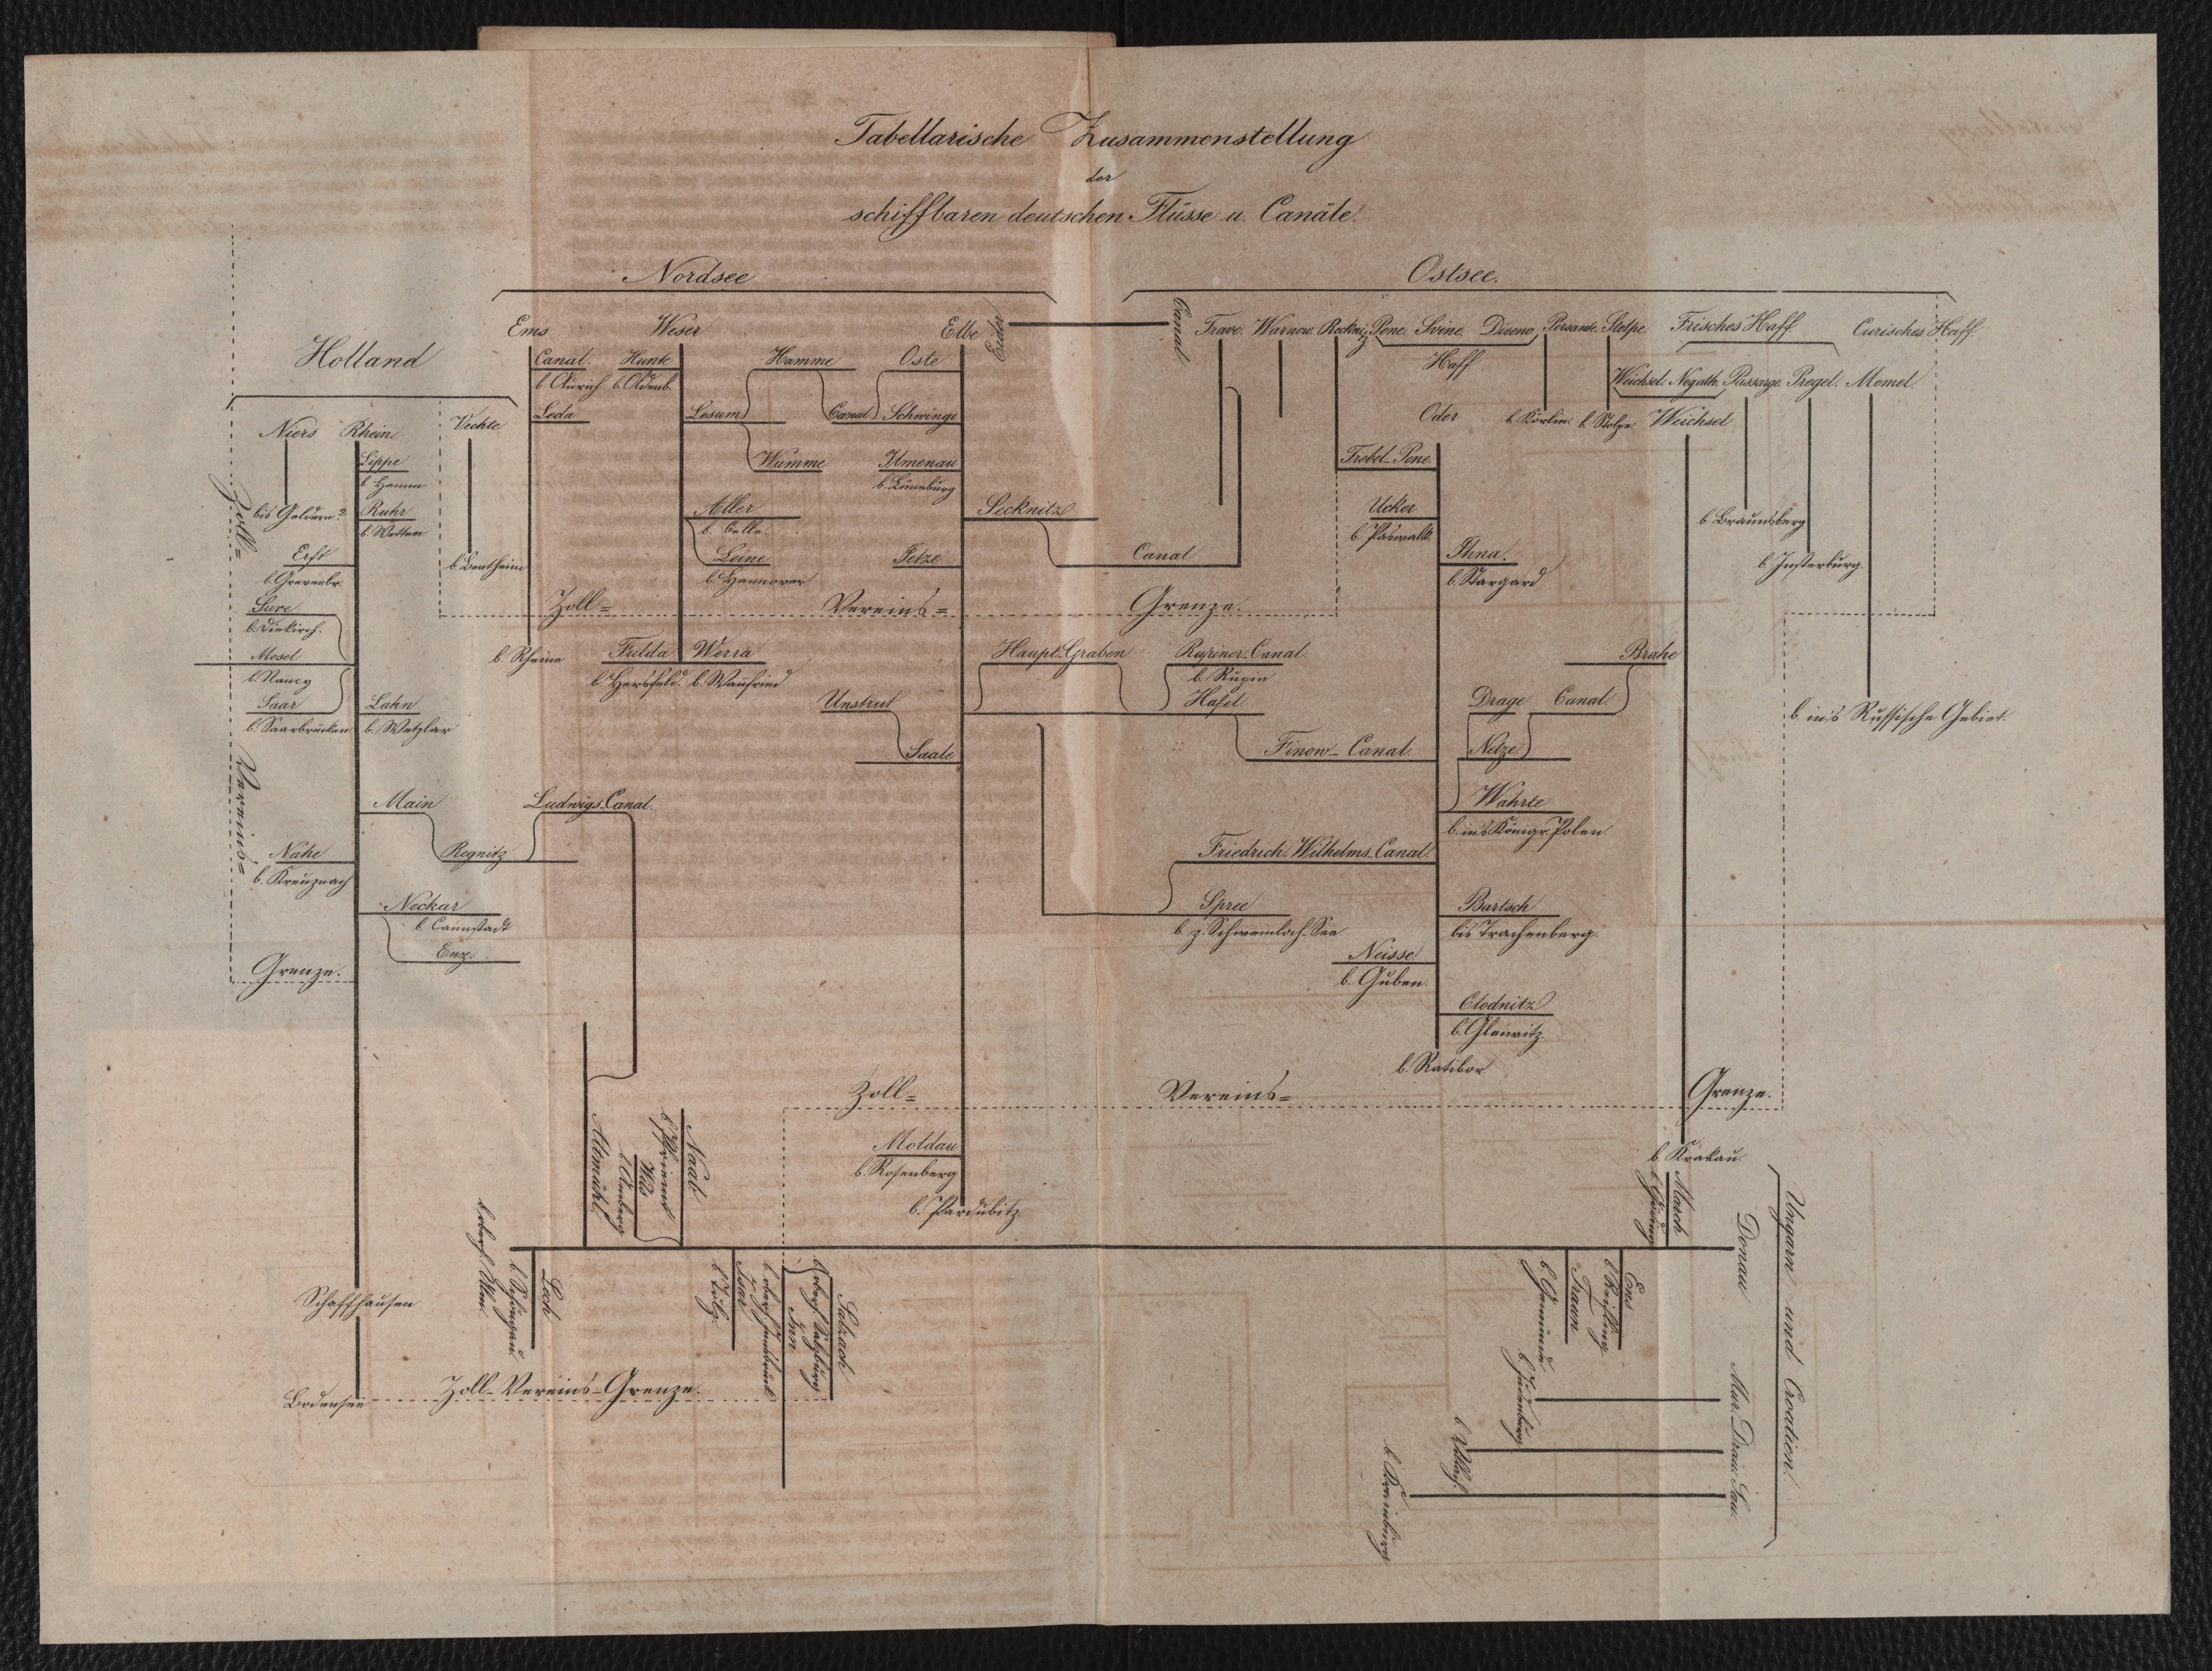 Tabellarische Zusammenstellung
der
schiffbaren deutschen Flüsse u. Canäle.
Nordsee
Ostsee.
Holland
Ems
Weser
Elbe
Eider
Canal
Trave.
Warnow.
Recknitz
Pene.
Svine.
Diveno,
Persante.
Stolpe.
Frisches Haff.
Curisches Haff.
Haff
Weichsel.
Nogath.
Passarge.
Pregel.
Memel.
Oder
b. Körlin.
b. Stolpe.
Weichsel
Niers
Rhein
Vechte
Canal.
b. Aurich
Leda
Hunte
b. Oldenb.
Hamme
Oste
Lesum
Canal
Schwinge
Wümme
Ilmenau
b. Lüneburg
Lippe
b. Hamm
bis Geldern?
Ruhr
b. Wetten
Erft
b. Grevenbr.
b. Bentheim
Aller
b. Celle.
Leine
b. Hannover
Secknitz
Canal
Jetze
Trebel-Pene.
Ucker
b. Pasewalk.
Ihna.
b. Stargard
b. Braunsberg
b. Insterburg.
Sure
b. Diekirch.
Zoll=
Vereins=
Grenze.
Mosel
b. Nancy
Saar
b. Saarbrücken
Lahn
b. Wetzlar
b. Rheine
Fulda
b. Hersfeld.
Werra
b. Wanfried
Haupt-Graben
Rupiner-Canal
b. Rupin
Hafel.
Brahe
Unstrut
Saale
Finow-Canal.
Drage
Canal.
Netze
b. in's Russische Gebiet.
Zoll=
Vereins=
Grenze.
Main
Ludwigs-Canal.
Regnitz
Wahrte
b. in's Königr. Polen.
Nahe
b. Kreuznach
Friedrich-Wilhelms-Canal.
Neckar
b. Cannstadt
Enz.
Spree
b. z. Schwemloch-See
Bartsch
bis Trachenberg.
Neisse
b. Guben.
Clodnitz
b. Gleiwitz.
b. Ratibor
Zoll=
Vereins=
Grenze.
Moldau
b. Rosenberg
b. Pardubitz.
b. Krakau.
Altmühl.
Vils
b. Amberg
Naab.
b. Pfreimd
March
b. Göding
Donau
Ungarn und Croatien.
b. oberh. Ulm.
Lech
b. Schongau.
Isar
b. Tölz.
Inn
b. oberh. Innsbruck
Salzach
b. oberh. Salzburg
Traun
b. Gemünd
Ens
b. Reifling.
Schaffhausen
Bodensee
Zoll-Vereins-Grenze.
Mur.
Drau.
Sau.
b. Judenburg
b. Villach.
b. Krainburg